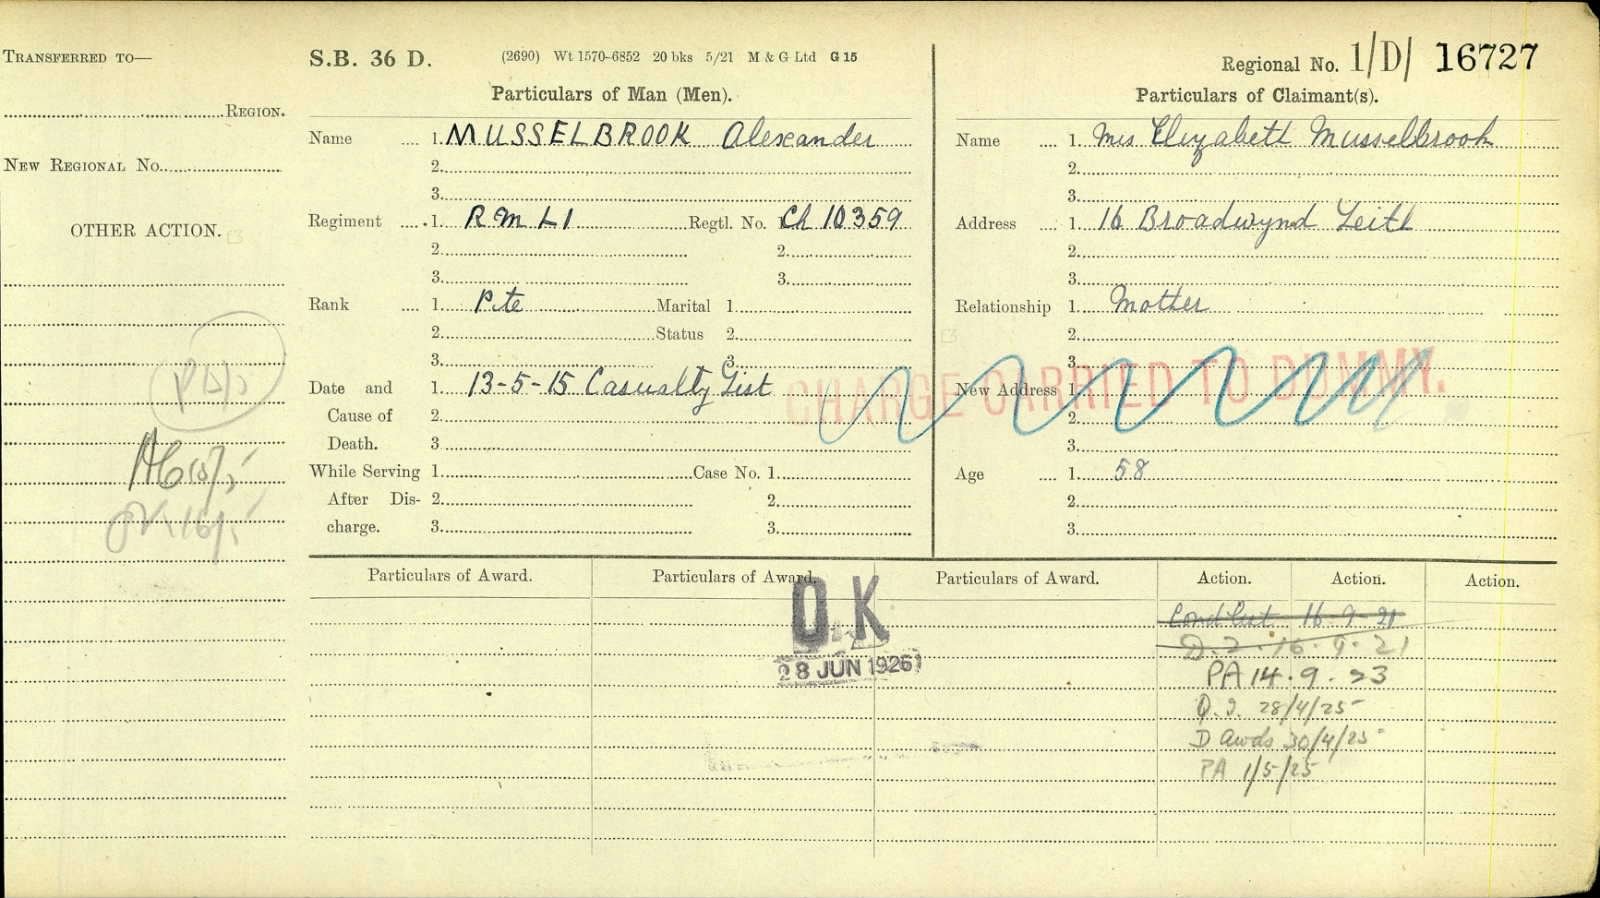 TRANSFERRED TO—
REGION.
NEW REGIONAL NO.
OTHER ACTION.
S.B. 36 D. (2690) Wt 1570-6852 20 bks 5/21 M & G Ltd G 15
Particulars of Man (Men).
Name 1. MUSSELBROOK Alexander
2.
3.
Regiment 1. R M L I Regtl. No. Ch 10359
2. 2.
3. 3.
Rank 1. Pte Marital 1.
2. Status 2.
3. 3.
Date and 1. 13-5-15 Casualty List
Cause of 2.
Death. 3.
While Serving 1. Case No. 1.
After Dis- 2. 2.
charge. 3. 3.
Regional No. 1/D/ 16727
Particulars of Claimant(s).
Name 1. Mrs Elizabeth Musselbrook
2.
3.
Address 1. 16 Broadwynd Leith
2.
3.
Relationship 1. Mother
2.
3.
CHARGE CARRIED TO DUMMY.
New Address 1.
2.
3.
Age 1. 58
2.
3.
Particulars of Award. Particulars of Award. Particulars of Award. Action. Action. Action.
OK
28 JUN 1926
16-9-21
D.2. 16.9.21
PA 14.9.23
28/4/25
D Awds 30/4/25
PA 1/5/25